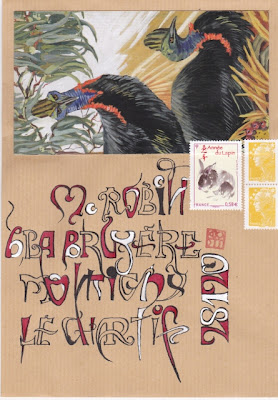 Année
du Lapin
FRANCE
0,58€
Mc ROBIN
6 LA BRUYÈRE
MONTIGNY
LE CHARTIF
28120